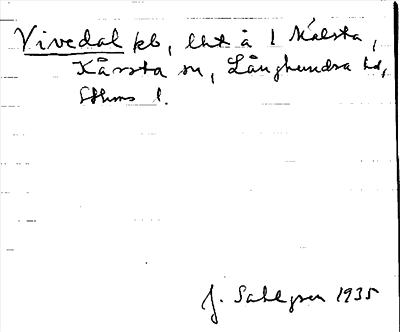 Vivedal pb, lht å 1 Målsta,
Kårsta sn, Långhundra hd,
Sthms l.
J. Sahlgren 1935